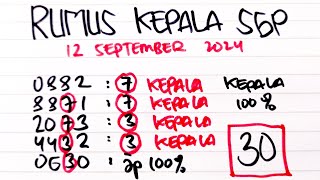 RUMUS KEPALA SGP
12 SEPTEMBER 2024
0882 : 7 KEPALA
8871 : 7 KEPALA
2073 : 3 KEPALA
4432 : 3 KEPALA
0630 : 2p 100%
KEPALA
100%
30